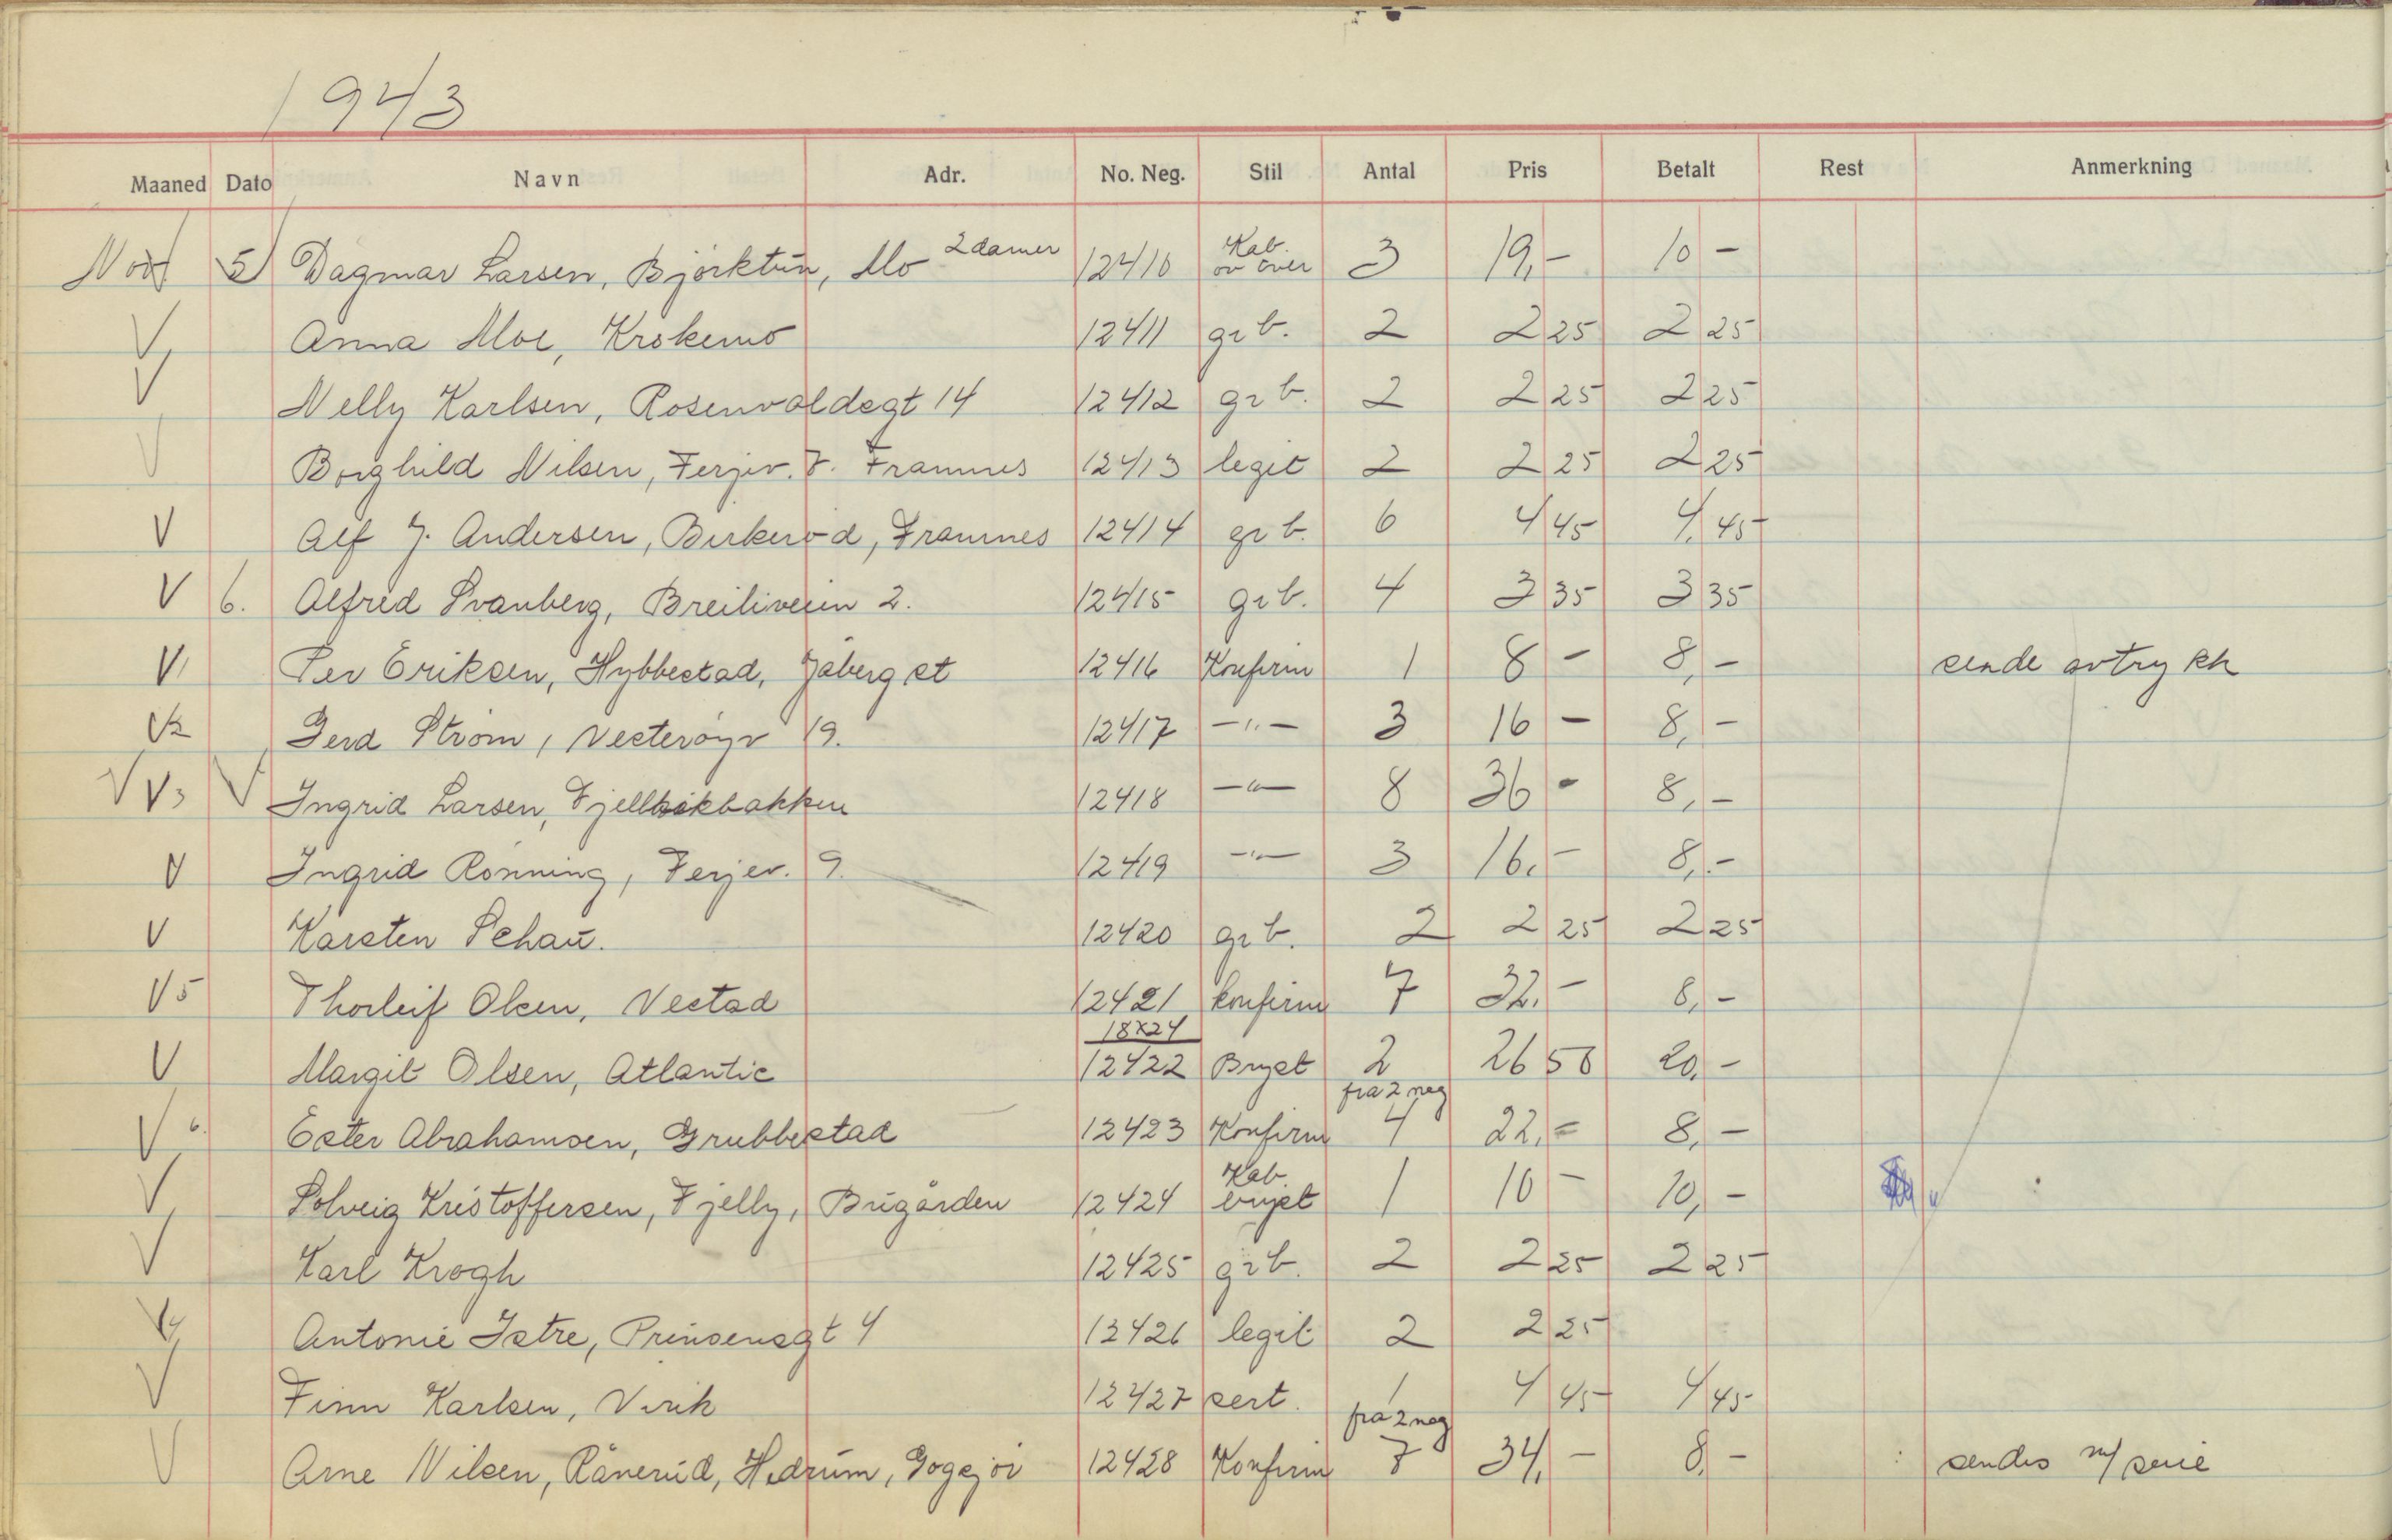 1943
Maaned Dato Navn Adr. No. Neg. Stil Antal Pris Betalt Rest Anmerkning
Nov 5 Dagmar Larsen, Björktun, Mo 2 damer 12410 Kab. ov över 3 19,- 10 -
V Anna Moe, Krokemo 12411 gr b. 2 2 25 2 25
V Nelly Karlsen, Rosenvoldsgt 14 12412 gr b. 2 2 25 2 25
V Borghild Nilsen, Ferjev. 7. Framnes 12413 legit 2 2 25 2 25
V Alf J. Andersen, Birkerød, Framnes 12414 gr b. 6 4 45 4, 45
V 6. Alfred Svanberg, Breiliveien 2. 12415 gr b. 4 3 35 3 35
V Per Eriksen, Hybbestad, Jåberg st 12416 Konfirm 1 8 - 8, - sende avtrykk
V2 Gerd Ström, Vesteröyv 19. 12417 -"- 3 16 - 8, -
V V3 V Ingrid Larsen, Fjellvikbakken 12418 -"- 8 36 - 8, -
V Ingrid Rönning, Ferjev. 9. 12419 -"- 3 16,- 8,-
V Karsten Schau. 12420 gr b. 2 2 25 2 25
V5 Thorleif Olsen, Vestad 12421 konfirm 7 32,- 8,-
18x24
V Margit Olsen, Atlantic 12422 Bryst 2 26 50 20,-
fra 2 neg
V 6. Ester Abrahamsen, Grubbestad 12423 Konfirm 4 22,- 8,-
V Solveig Kristoffersen, Fjelly, Bugården 12424 Kab bryst 1 10 - 10, -
V Karl Krogh 12425 gr b. 2 2 25 2 25
V Antonie Istre, Prinsensgt 4 12426 legit 2 2 25
V Finn Karlsen, Virik 12427 sert. 1 4 45 4 45
fra 2 neg
V Arne Nilsen, Rånerud, Hedrum, Gogsjö 12428 Konfirm 7 34, - 8, - sendes m/ serie